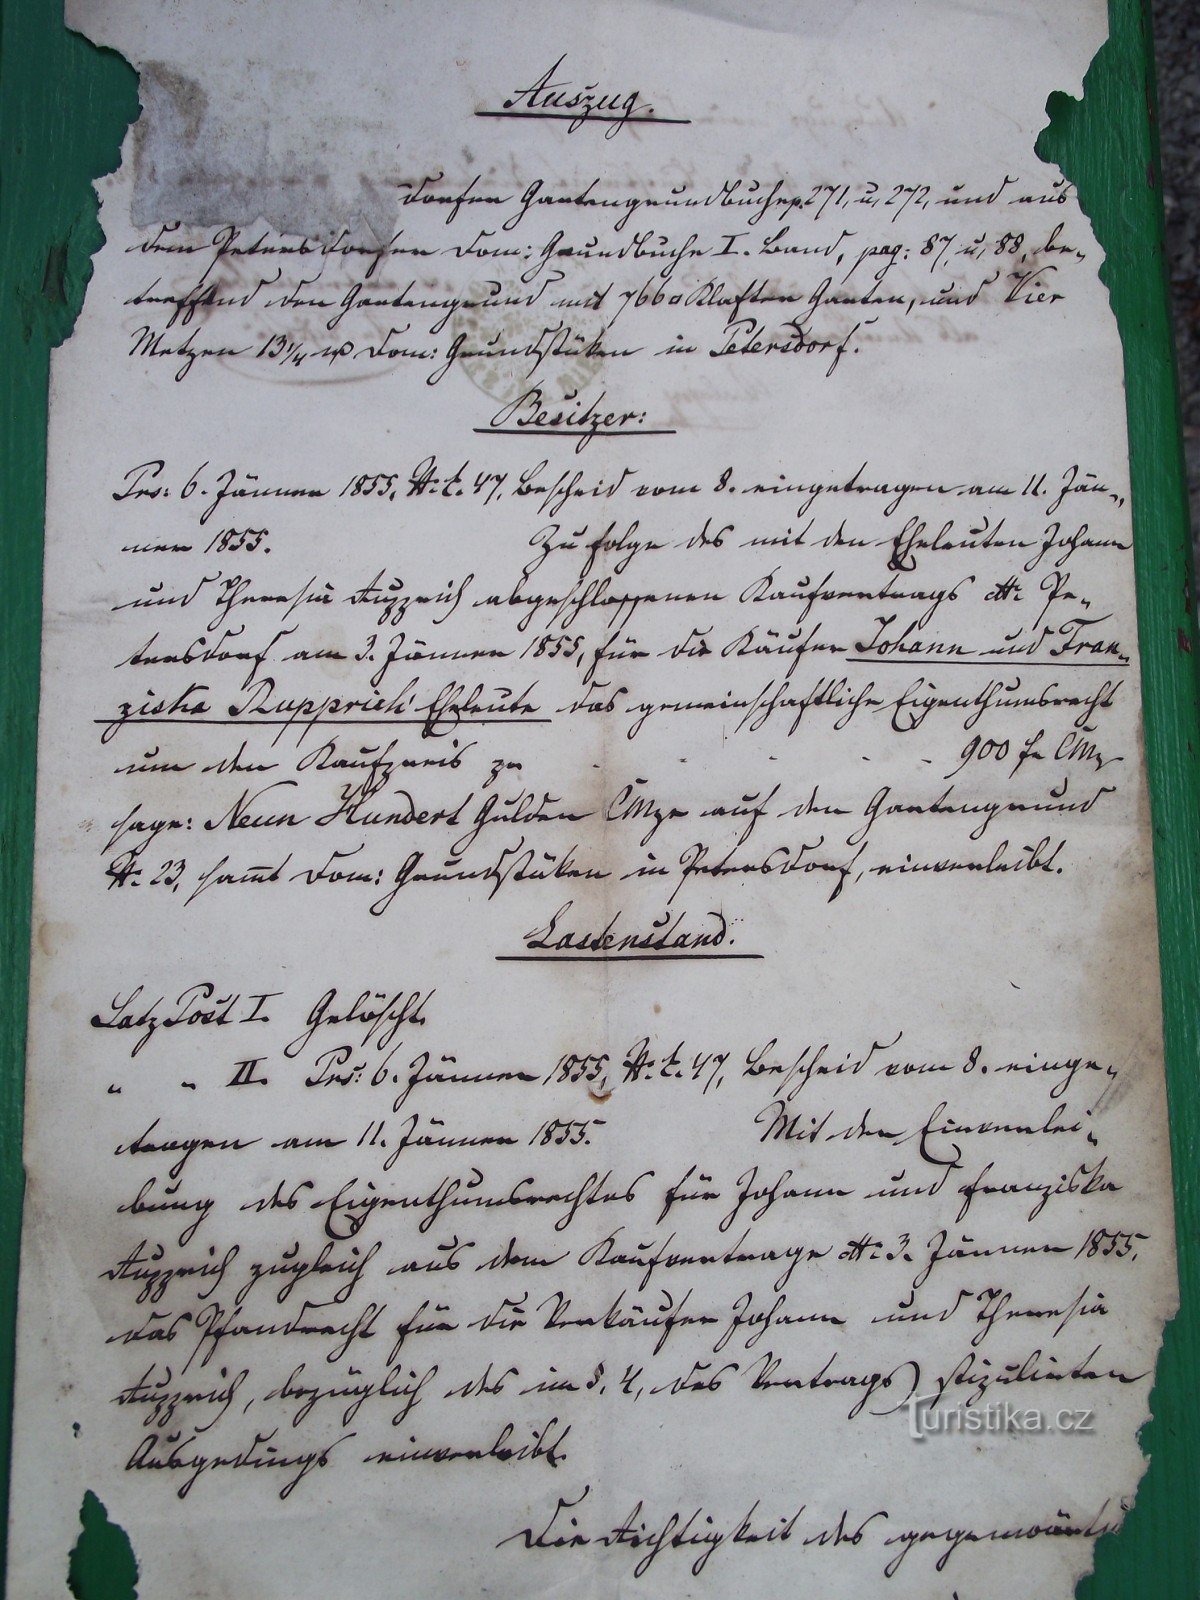 Auszug.
dorfer Gartengrundbuche p. 271, u, 272, und aus
dem Petersdorfer Dom: Grundbuche I. Band, pag: 87, u, 88, be-
treffend den Gartengrund mit 766□ Klafter Garten, und Vier
Metzen 13 1/4 Dom: Grundstüken in Petersdorf.
Besitzer:
Prs: 6. Jänner 1855, N: E. 47, Bescheid vom 8. eingetragen am 11. Jän-
ner 1855. Zu folge des mit den Eheleuten Johann
und Theresia Rupprich abgeschlossenen Kaufvertrags dto: Pe-
tersdorf am 3. Jänner 1855, für die Käufer Johann und Fran-
ziska Rupprich Eheleute das gemeinschaftliche Eigenthumsrecht
um den Kaufpreis pr 900 fr CMz
sage: Neun Hundert Gulden CMze auf den Gartengrund
N: 23, sammt Dom: Grundstüken in Petersdorf, einverleibt.
Lastenstand.
Satz Post I. Gelöscht.
" " II. Prs: 6. Jänner 1855, N: E. 47, Bescheid vom 8. einge-
tragen am 11. Jänner 1855. Mit der Einverlei-
bung des Eigenthumsrechtes für Johann und Franziska
Rupprich zugleich aus dem Kaufvertrage dto: 3. Jänner 1855.
das Pfandrecht für die Verkäufer Johann und Theresia
Rupprich, bezüglich des im §. 4, des Vertrags stipulirten
Ausgedings einverleibt.
Die Richtigkeit des gegenwärti
Turistika.cz